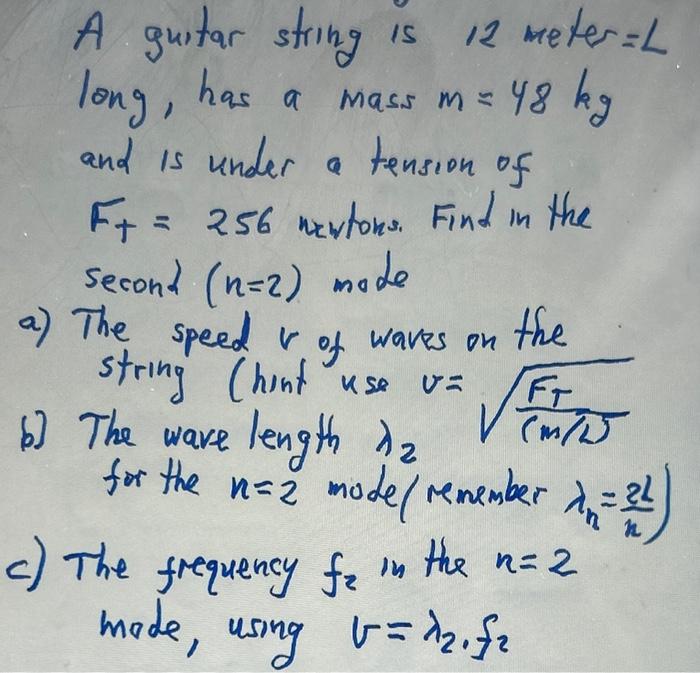 A guitar string is 12 meter = L
long, has a mass m = 48 kg
and is under a tension of
F_T = 256 newtons. Find in the
second (n=2) mode
a) The speed v of waves on the
string (hint use v = √(F_T/(m/L))
b) The wave length λ₂
for the n=2 mode (remember λₙ = 2L/n)
c) The frequency f₂ in the n=2
mode, using v = λ₂.f₂